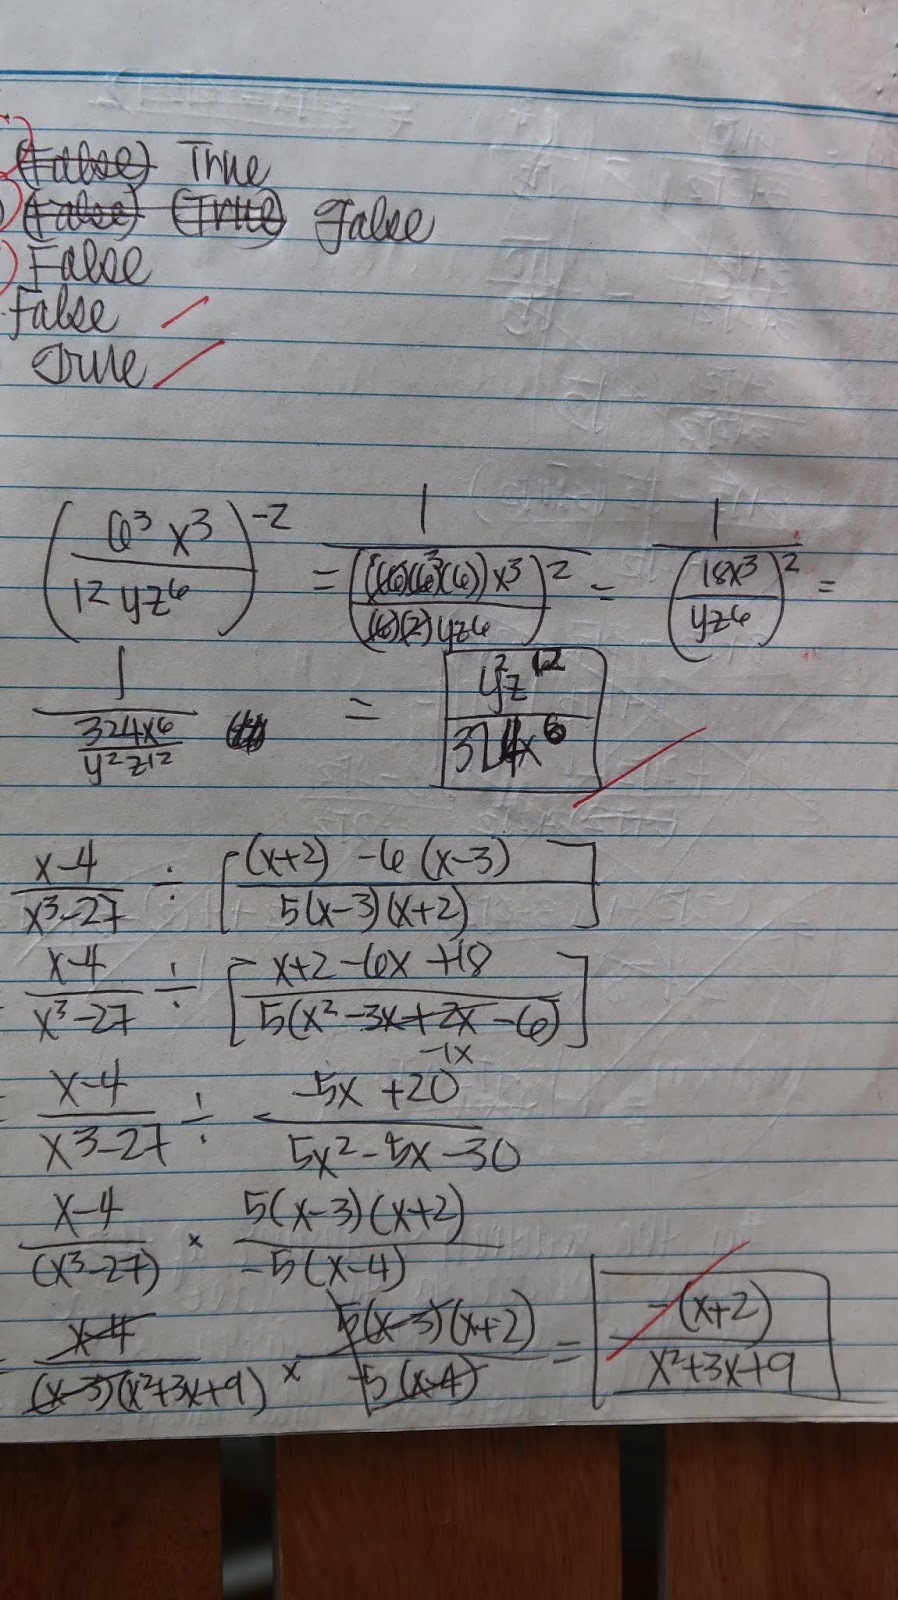 (False) True
(False) (True) False
False
False
True
(6³x³ / 12yz⁶)⁻² = 1 / (((6)(6)(6))x³ / (6)(2)yz⁶)² = 1 / (18x³ / yz⁶)² =
1 / (324x⁶ / y²z¹²) = y²z¹² / 324x⁶
x-4 / x³-27 ÷ [(x+2) -6(x-3) / 5(x-3)(x+2)]
x-4 / x³-27 ÷ [x+2-6x+18 / 5(x²-3x+2x-6)]
-1x
x-4 / x³-27 ÷ -5x+20 / 5x²-5x-30
x-4 / (x³-27) × 5(x-3)(x+2) / -5(x-4)
x-4 / (x-3)(x²+3x+9) × 5(x-3)(x+2) / -5(x-4) = -(x+2) / x²+3x+9